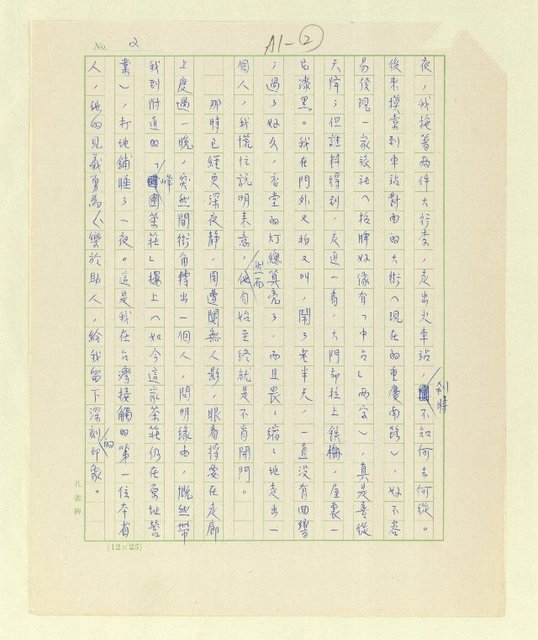 No. 2
A1-②
夜，我拖著兩件大行李，走出火車站，剎時不知何去何從。
後來摸索到車站對面的大街（現在的重慶南路），好不容
易發現一家旅社（招牌好像有「中台」兩字），真是喜從
天降；但誰料得到，走近一看，大門卻拉上鐵柵，屋裏一
片漆黑。我在門外又拍又叫，鬧了老半天，一直沒有回響
；過了好久，店堂的灯總算亮了，而且畏畏縮縮地走出一
個人，我慌忙說明來意，然而他自始至終就是不肯開門。
那時已經更深夜靜，周遭闃無人影，眼看將要在走廊
上度過一晚，突然間街角轉出一個人，問明緣由，慨然帶
我到附近的「峰圃茶莊」樓上（如今這家茶莊仍在原址營
業），打地鋪睡了一夜。這是我在台灣接觸的第一位本省
人，他的見義勇為、樂於助人，給我留下深刻的印象。
孔雀牌
(12×25)